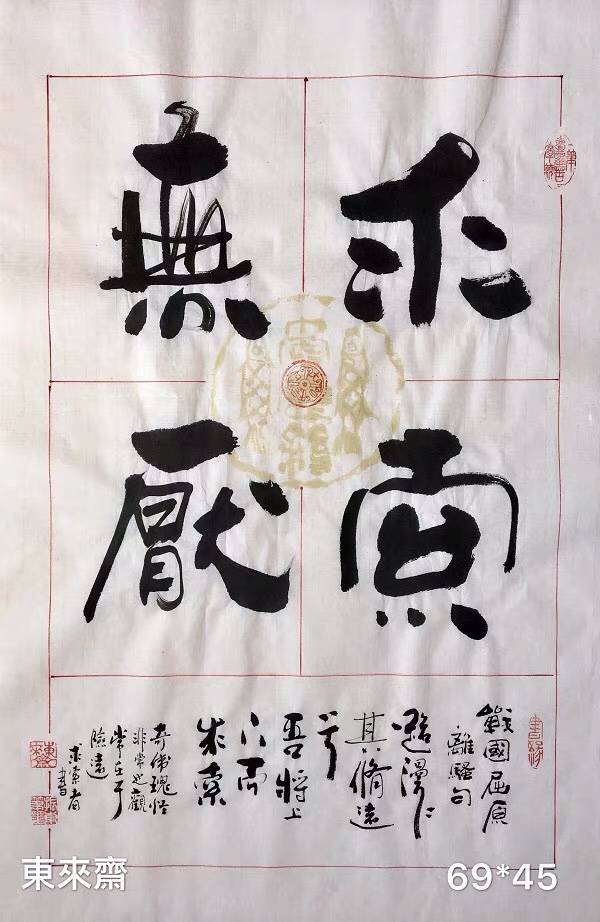 求索
無厭
戰國屈原
離騷句
路漫〻
其脩遠
兮
吾將上
下而
求索
奇偉瑰怪
非常之觀
常在乎
險遠
求索者
書
東來齋
69*45